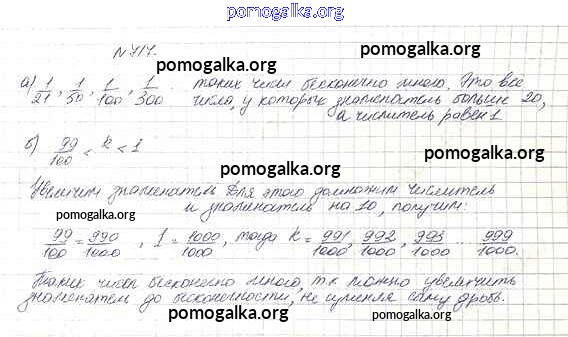 pomogalka.org
N 717.
pomogalka.org
а) 1/21, 1/50, 1/100, 1/300 таких чисел бесконечно много. Это все
числа, у которых знаменатель больше 20,
а числитель равен 1
pomogalka.org
б) 99/100 < k < 1
pomogalka.org
pomogalka.org
Увеличим знаменатель для этого домножим числитель
и знаменатель на 10, получим:
pomogalka.org
pomogalka.org
99/100 = 990/1000, 1 = 1000/1000, тогда k = 991/1000, 992/1000, 993/1000 ... 999/1000.
pomogalka.org
Таких чисел бесконечно много, т.к можно увеличить
знаменатель до бесконечности, не изменяя саму дробь.
pomogalka.org
pomogalka.org